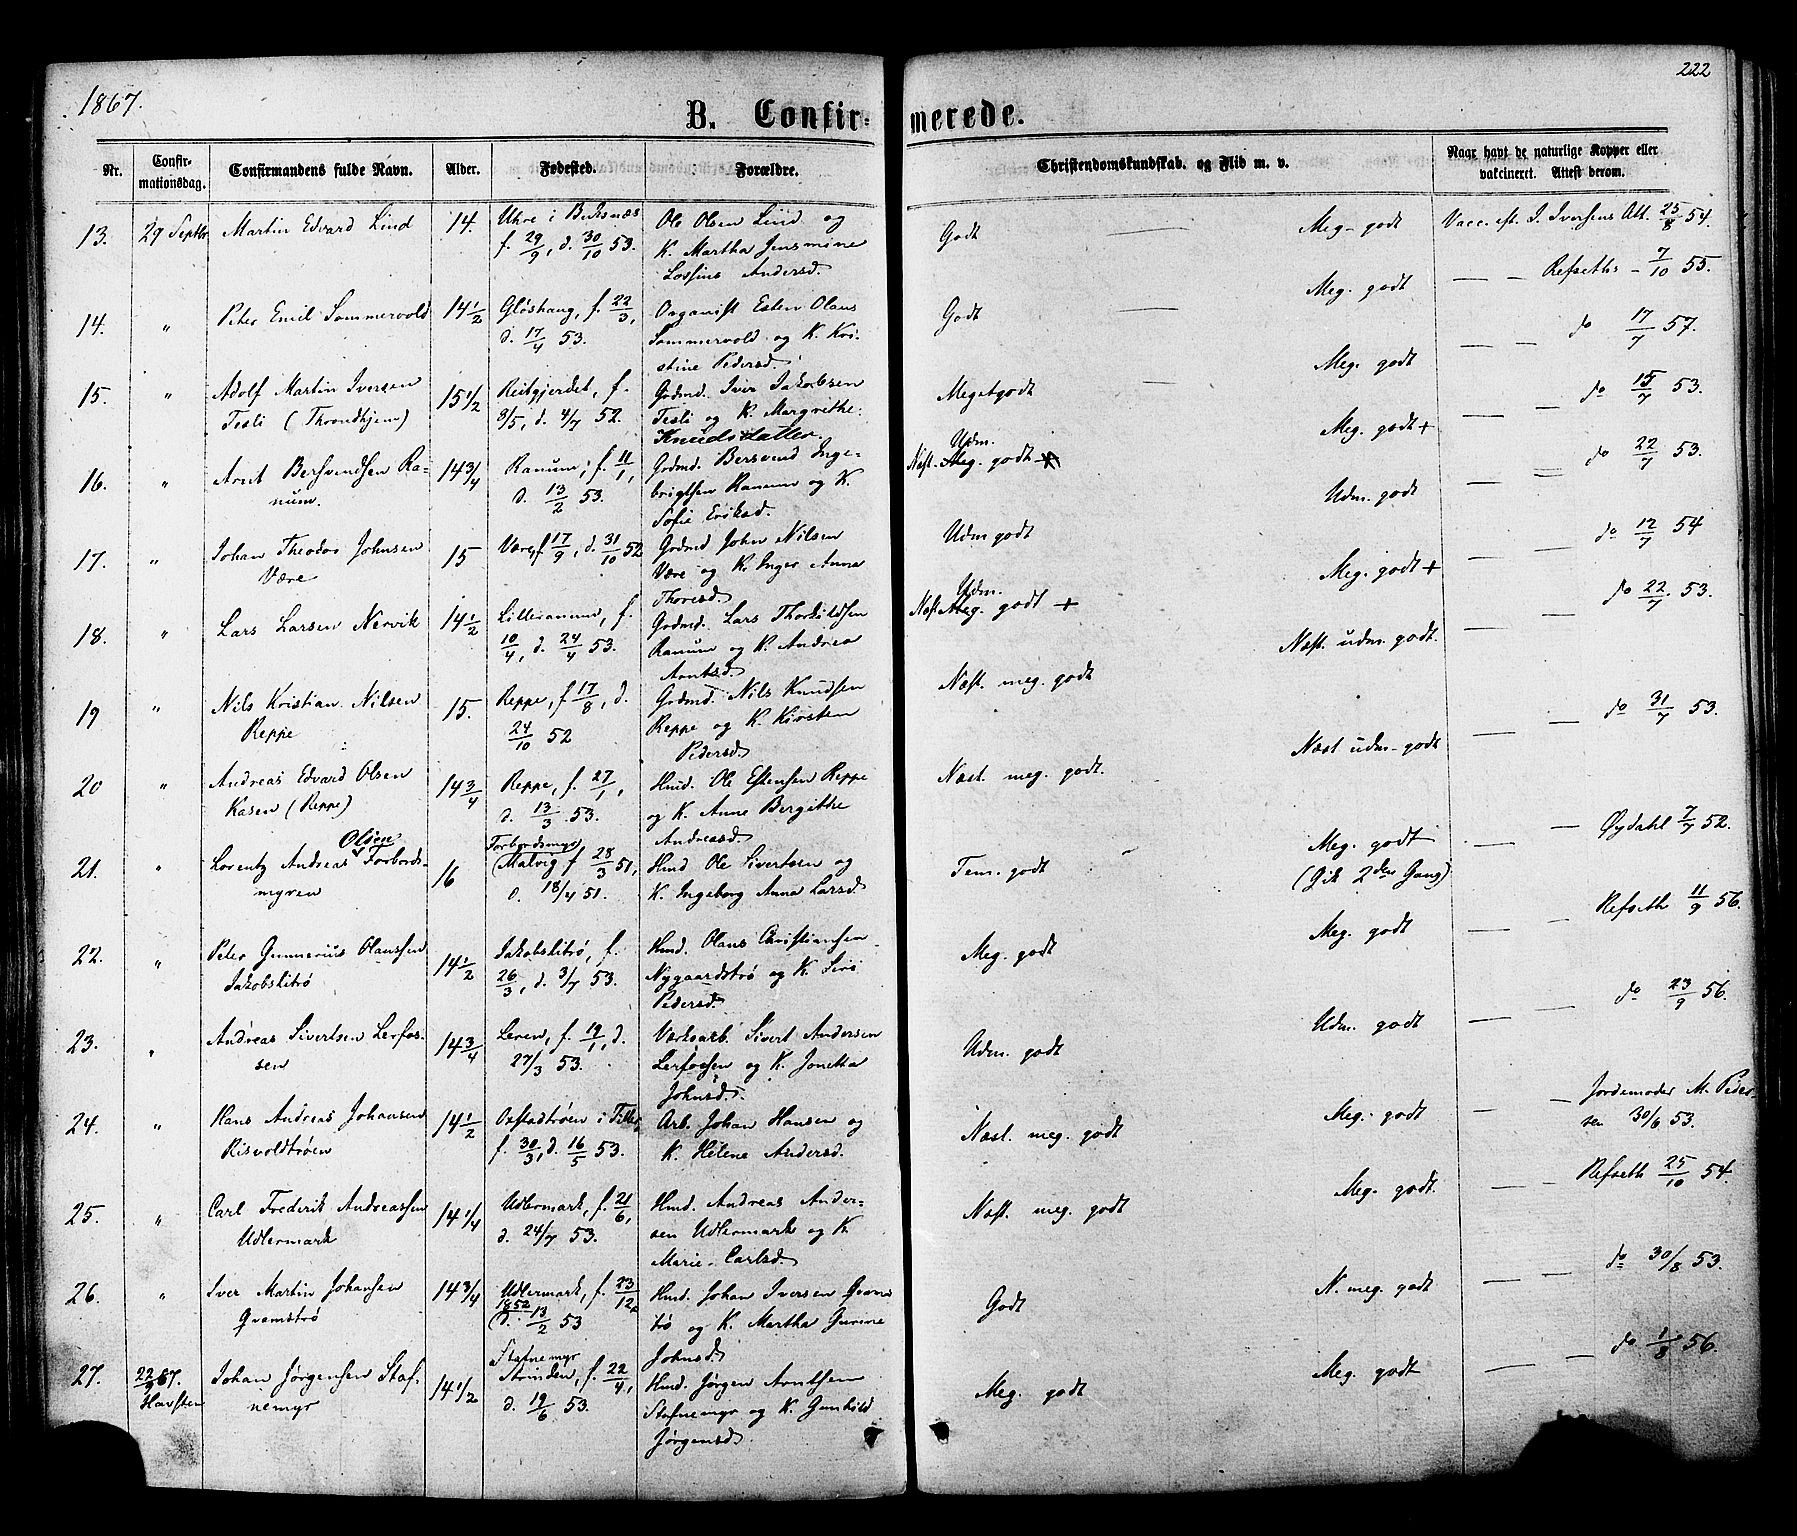 1867.
222
B. Confirmerede.
Nr.
Confirmationsdag.
Confirmandens fulde Navn.
Alder.
Fødested.
Forældre.
Christendomskundskab. og Flid m. v.
Naar havt de naturlige Kopper eller
vakcineret. Attest derom.
13. 29 Septbr Martin Edvard Lind 14.
f. 29/9, d. 30/10 53.
Ole Olsen Lind og
K. Martha Jensmine
Andersd.
Godt — Meg. godt
Vacc. eft. I. Iversens Att. 25/8 54.
14. " Peter Emil Sommervold 14 1/2
Gløshaug, f. 22/3,
d. 17/4 53.
Organist Esten Olaus
Sommervold og K. Kri-
stine Pedersd.
Godt — Meg. godt
— — Refseths - 7/10 55.
15. " Adolf Martin Iversen
Tesli (Throndhjem) 15 1/2
Reitgjerdet, f.
8/5, d. 4/7 52.
Gdmd. Iver Jakobsen
Tesli og K. Margrethe
Knudsdatter.
Megetgodt — Meg. godt
— — do 17/7 57.
16. " Arnt Bersvendsen Ra-
num. 14 3/4
Ranum, f. 11/1,
d. 13/2 53.
Gdmd. Bersvend Inge-
brigtsen Ranum og K.
Sofie Eriksd.
Udm.
Næst. Meg. godt + Meg. godt +
— — do 15/7 53.
17. " Johan Theodor Johnsen
Være 15
Være, f. 17/9, d. 31/10 52
Gdmd John Nilsen
Være og K. Inger Anna
Thoresd.
Udm godt Udm. godt
— — do 22/7 53.
18. " Lars Larsen Nervik 14 1/2
Lilleranum, f.
10/4, d. 24/4 53.
Gdmd. Lars Thorkildsen
Ranum og K. Andrea
Arntsd.
Udm.
Næst. Meg. godt + Meg. godt +
— — do 12/7 54
19 " Nils Kristian Nilsen
Reppe 15.
Reppe, f. 17/8, d.
24/10 52
Gdmd. Nils Knudsen
Reppe og K. Kirsten
Pedersd.
Næst. meg. godt Næst. udm. godt.
— — do 22/7. 53.
20 " Andreas Edvard Olsen
Kasen (Reppe) 14 3/4
Reppe, f. 27/1,
d. 13/3 53.
Hmd. Ole Estensen Reppe
og K. Anne Bergitthe
Andreasd.
Næst. meg. godt. Næst udm. godt
— — do 31/7 53.
21. " Lorentz Andreas Olsen Forbords-
myren 16
Forbordsmyr
(Malvig f 28/3 51,
d. 18/4 51.
Hmd Ole Sivertsen og
K. Ingeborg Anna Larsd.
Tem. godt Meg. godt
(Gik 2den Gang)
— — Øydahl 7/7 52.
22. " Peter Gunnerius Olaussen
Jakobslitrø 14 1/2
Jakobslitrø, f.
26/3, d. 3/7 53.
Hmd. Olaus Christiansen
Nygaardstrø og K. Siri
Pedersd.
Meg. godt Meg. godt
— — Refseth 11/9 56.
23. " Andreas Sivertsen Lerfos-
sen 14 3/4
Leren, f. 19/1, d.
27/3 53.
Værksarb. Sivert Andersen
Lerfossen og K. Jonetta
Johnsd.
Udm. godt Udm. godt
— — do 23/9 56.
24. " Hans Andreas Johansen
Risvoldtrøen 14 1/2
f. 30/3, d. 16/5 53.
Arb. Johan Hansen og
K. Helene Andersd.
Næst. meg. godt Meg. godt
— — Jordemoder M. Peder-
sen 30/6 53.
25. " Carl Frederik Andreassen
Udlermark 14 1/4
Udlermark, f. 21/6,
d. 24/7 53.
Hmd. Andreas Ander-
sen Udlermark og K.
Marie Carlsd.
Næst. meg. godt Meg. godt.
— — Refseth 25/10 54.
26. " Iver Martin Johansen
Qvamstrø 14 3/4
Udlermark, f. 23/12
1852
d. 13/2 53
Hmd. Johan Iversen Qvams-
trø og K. Martha Gurine
Johnsd.
Godt N. meg. godt
— — do 30/8 53.
27. 22/9 67.
Havsten
Johan Jørgensen Staf-
nemyr 14 1/2
Stafnemyr
Strinden, f. 22/4,
d. 19/6 53.
Hmd. Jørgen Arntsen
Stafnemyr og K. Gunhild
Jørgensd.
Meg. godt Meg. godt
— — do 1/8 56.